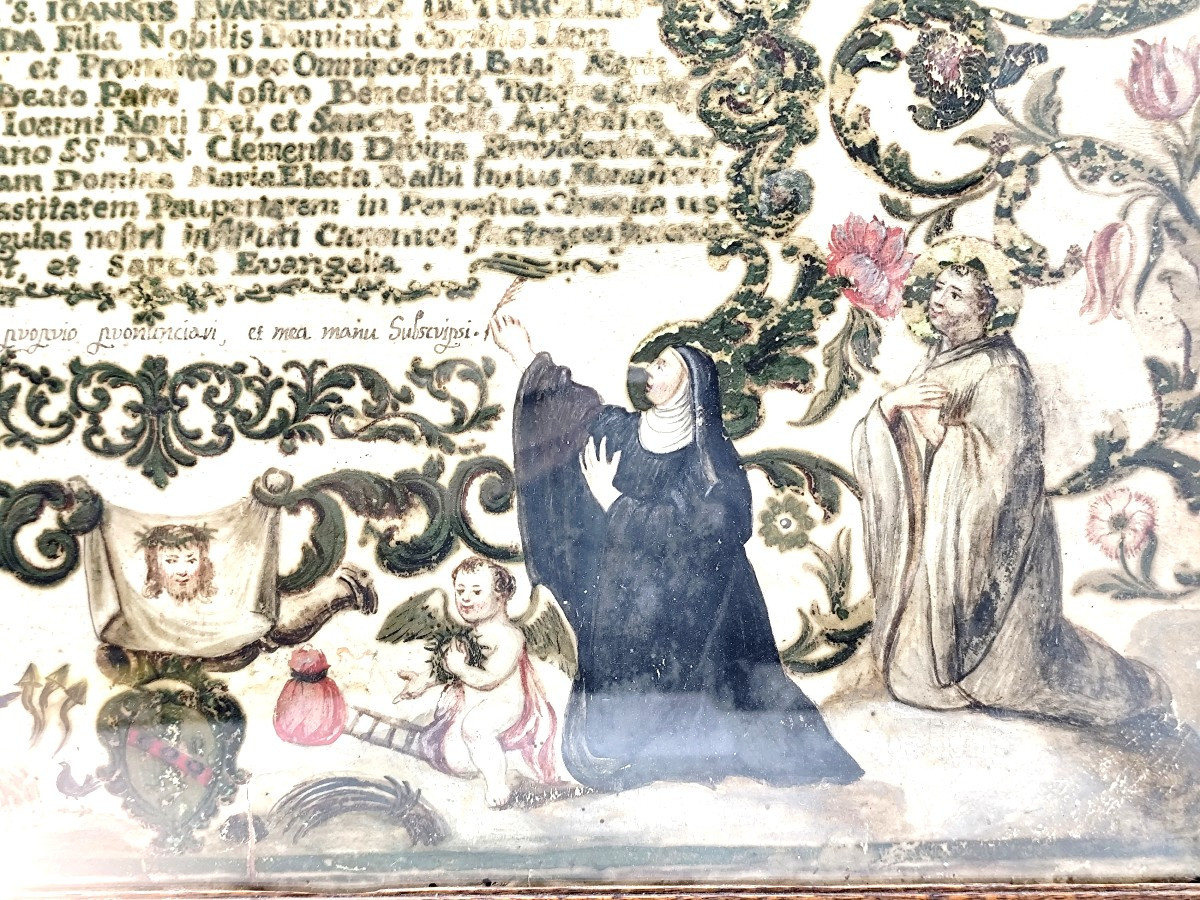 S. IOANNIS EVANGELISTÆ DE TORCELLO
DA Filia Nobilis Dominici
et Promitto Deo Omnipotenti, Beatæ Mariæ
Beato Patri Nostro Benedicto,
Ioanni Nani Dei, et Sanctæ Sedis Apostolicæ
ano SS.mi D.N. Clementis Divina Providentia XI.
am Domina Maria Electa Balbi huius Monasterii
astitatem Paupertatem in Perpetua Clausura
gulas nostri instituti Canonice
t, et Sancta Evangelia.
proprio pronunciavi, et mea manu Subscripsi.